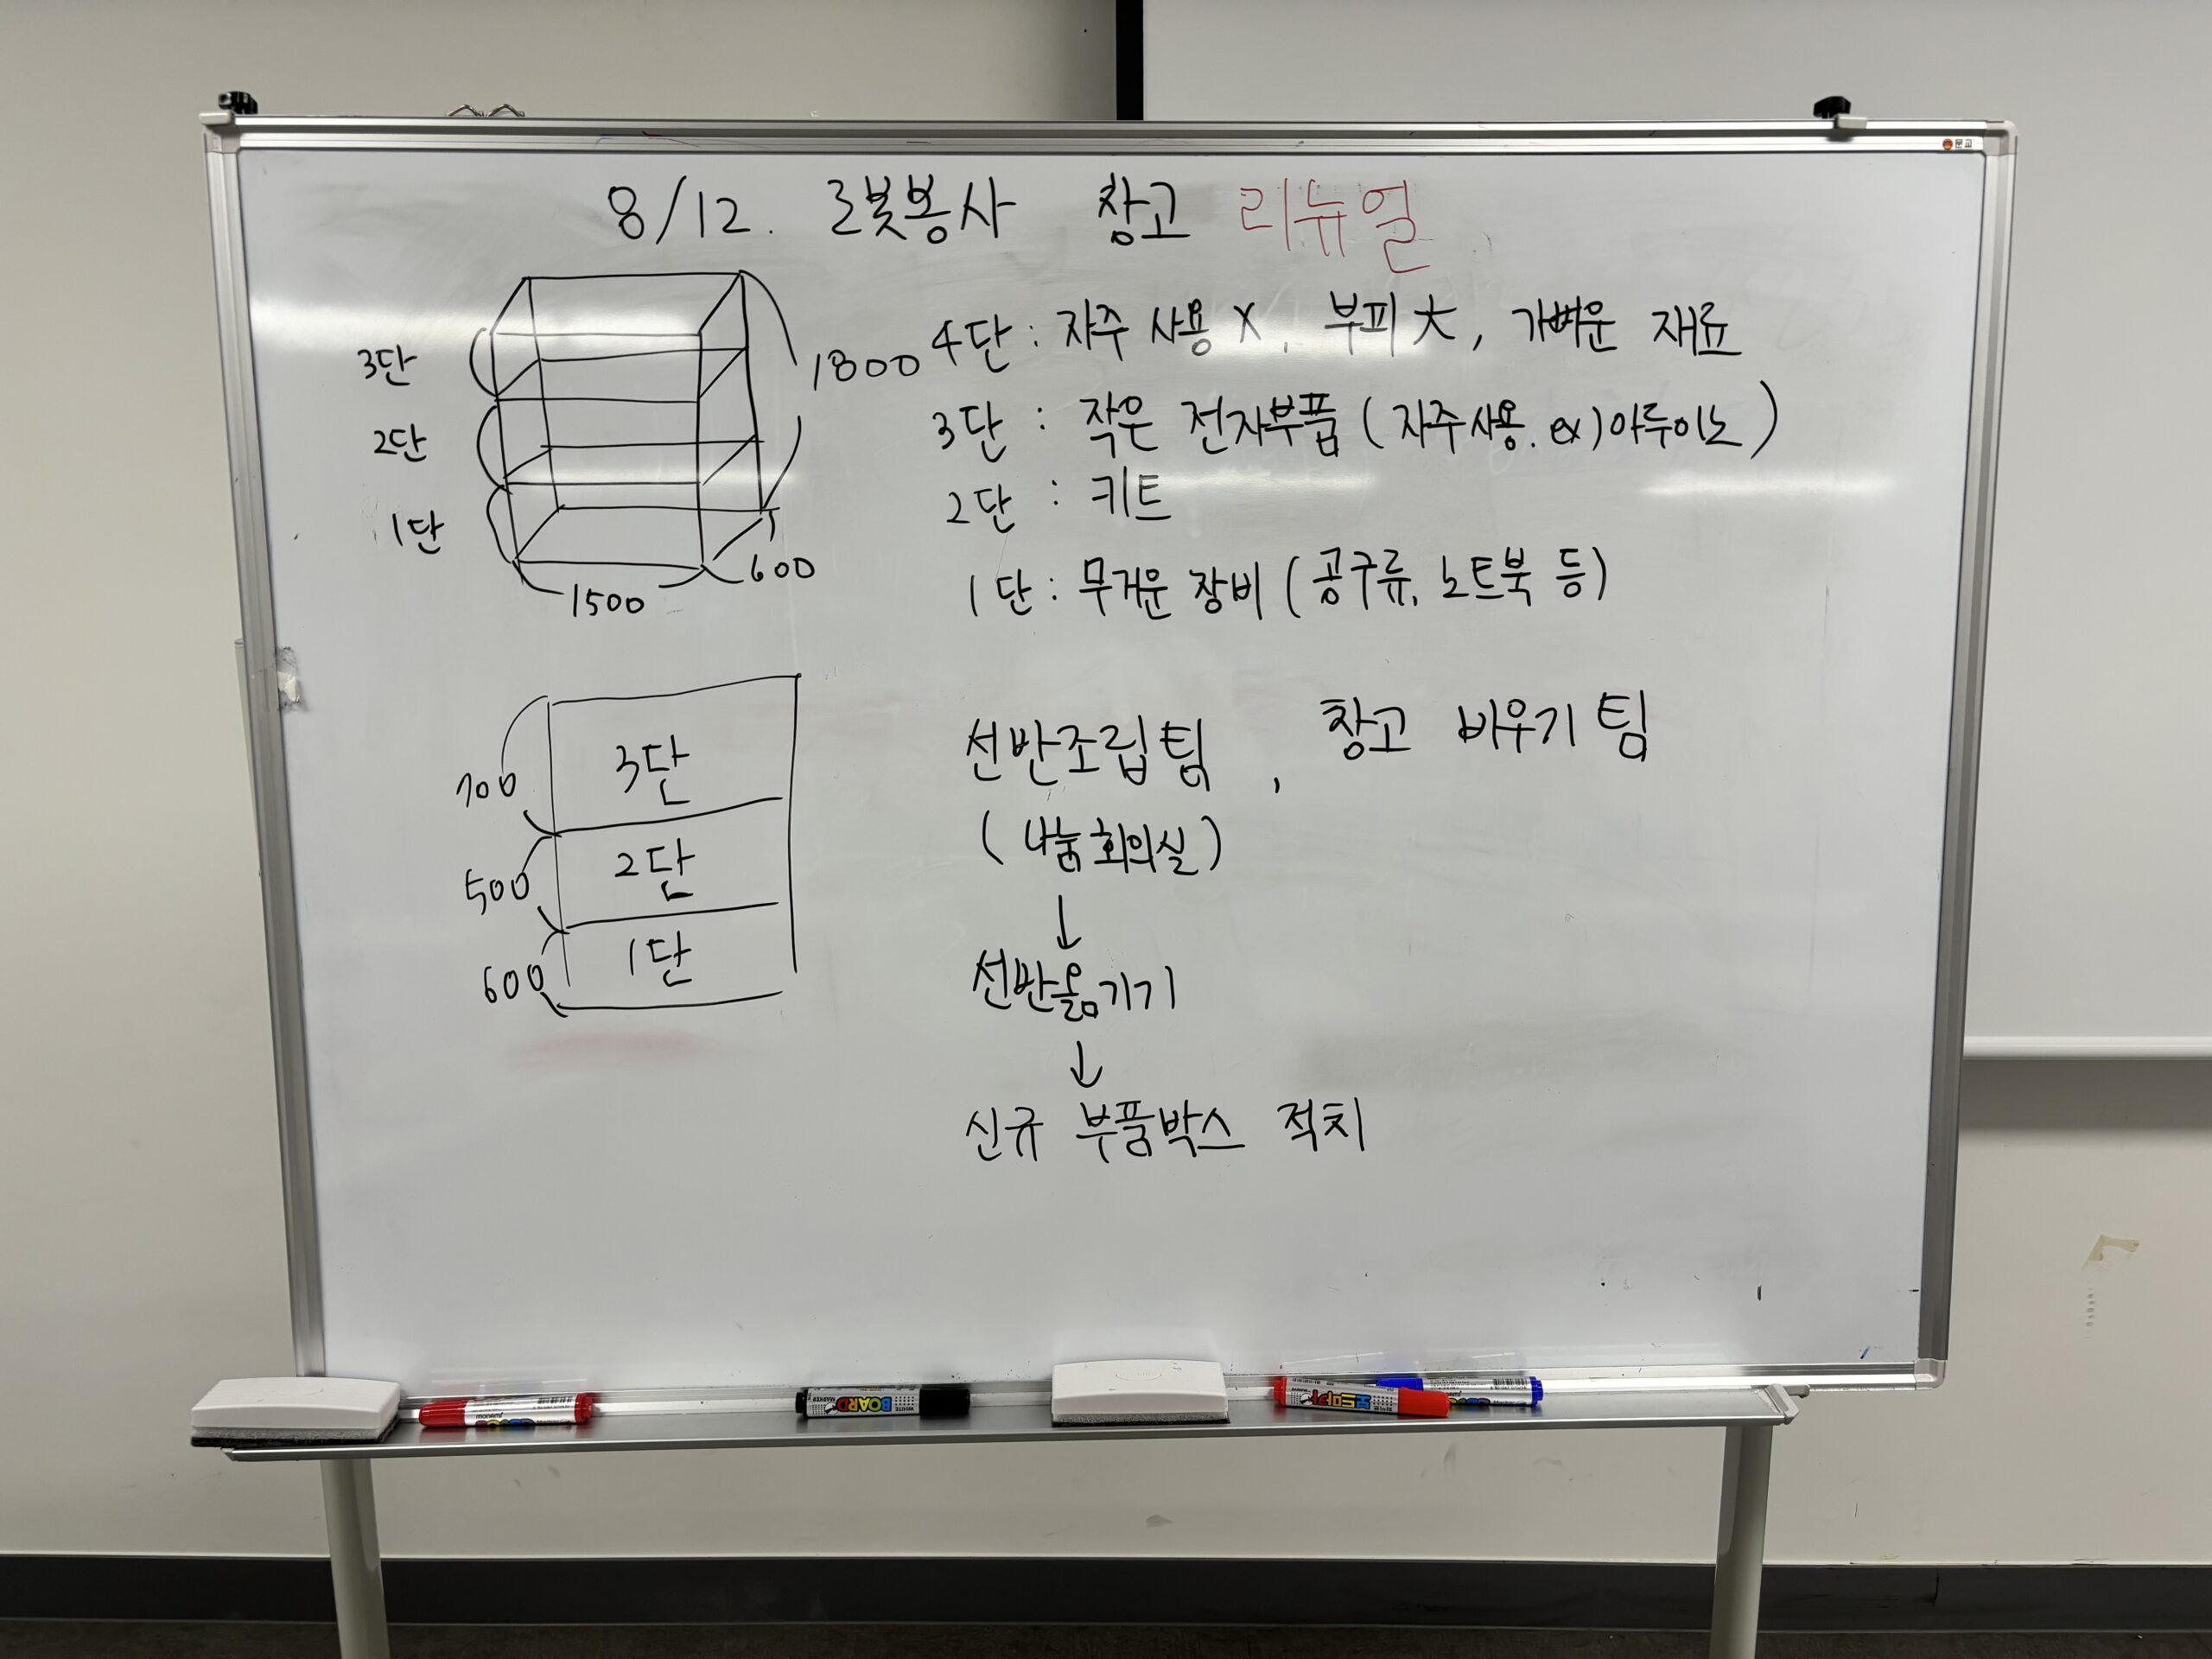 8/12. 로봇봉사 창고 리뉴얼
3단
2단
1단
1800
1500
600
4단 : 자주 사용 X, 부피 大, 가벼운 재료
3단 : 작은 전자부품 (자주사용. ex) 아두이노)
2단 : 키트
1단 : 무거운 장비 (공구류, 노트북 등)
700
3단
500
2단
600
1단
선반조립팀, 창고 비우기 팀
(나눔회의실)
↓
선반옮기기
↓
신규 부품박스 적치
monami
BOARD
WHITE
MARKER
보드마카